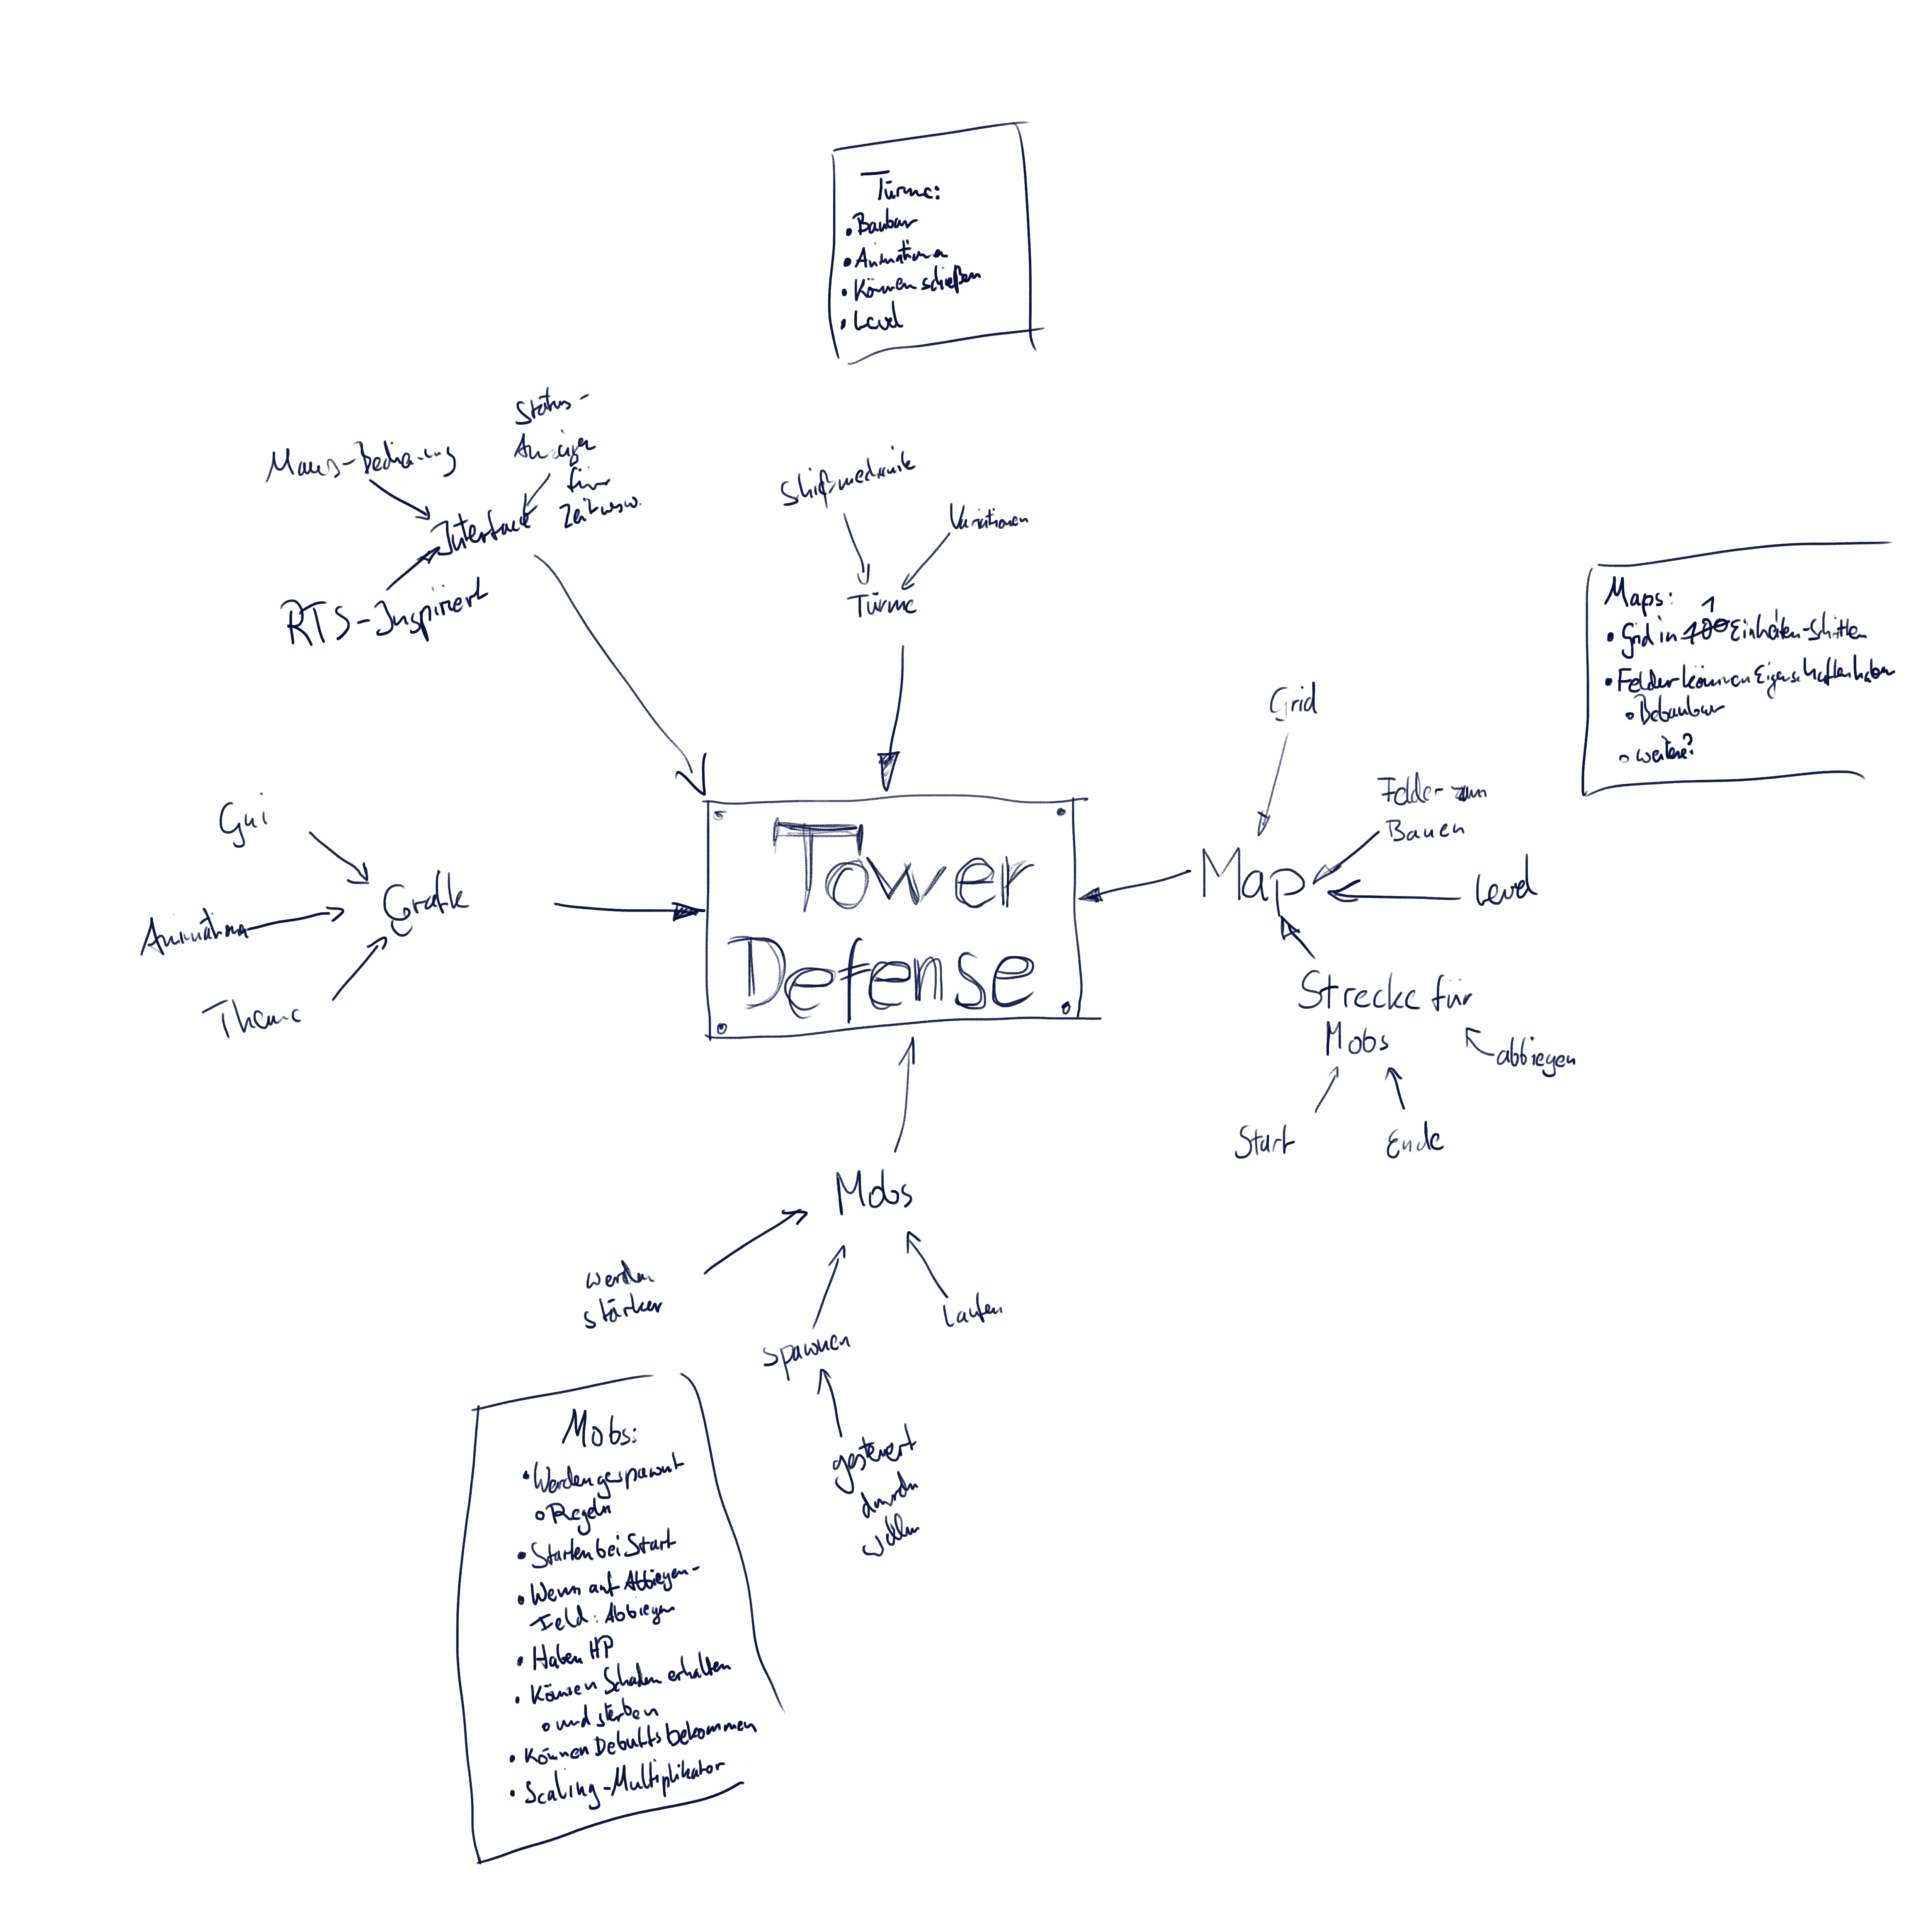 Türme:
• Baubar
• Animation
• Können schießen
• Level
Status-
Anzeige
für
Zeit usw.
Maus-Bedienung
Interface
RTS-Inspiriert
Variationen
Türme
Maps:
1
• Grid in 100 Einheiten-Schritten
• Felder können Eigenschaften haben
◦ Bebaubar
◦ weitere?
Grid
Felder zum
Bauen
Map
Level
Strecke für
Mobs
abbiegen
Start
Ende
Gui
Grafik
Animation
Theme
Tower
Defense
Mobs
werden
stärker
spawnen
Laufen
gesteuert
durch
wellen
Mobs:
• Werden gespawnt
◦ Regeln
• Starten bei Start
• Wenn auf Abbiegen-
Feld: Abbiegen
• Haben HP
• Können Schaden erhalten
◦ und sterben
• Können Debuffs bekommen
• Scaling-Multiplikator